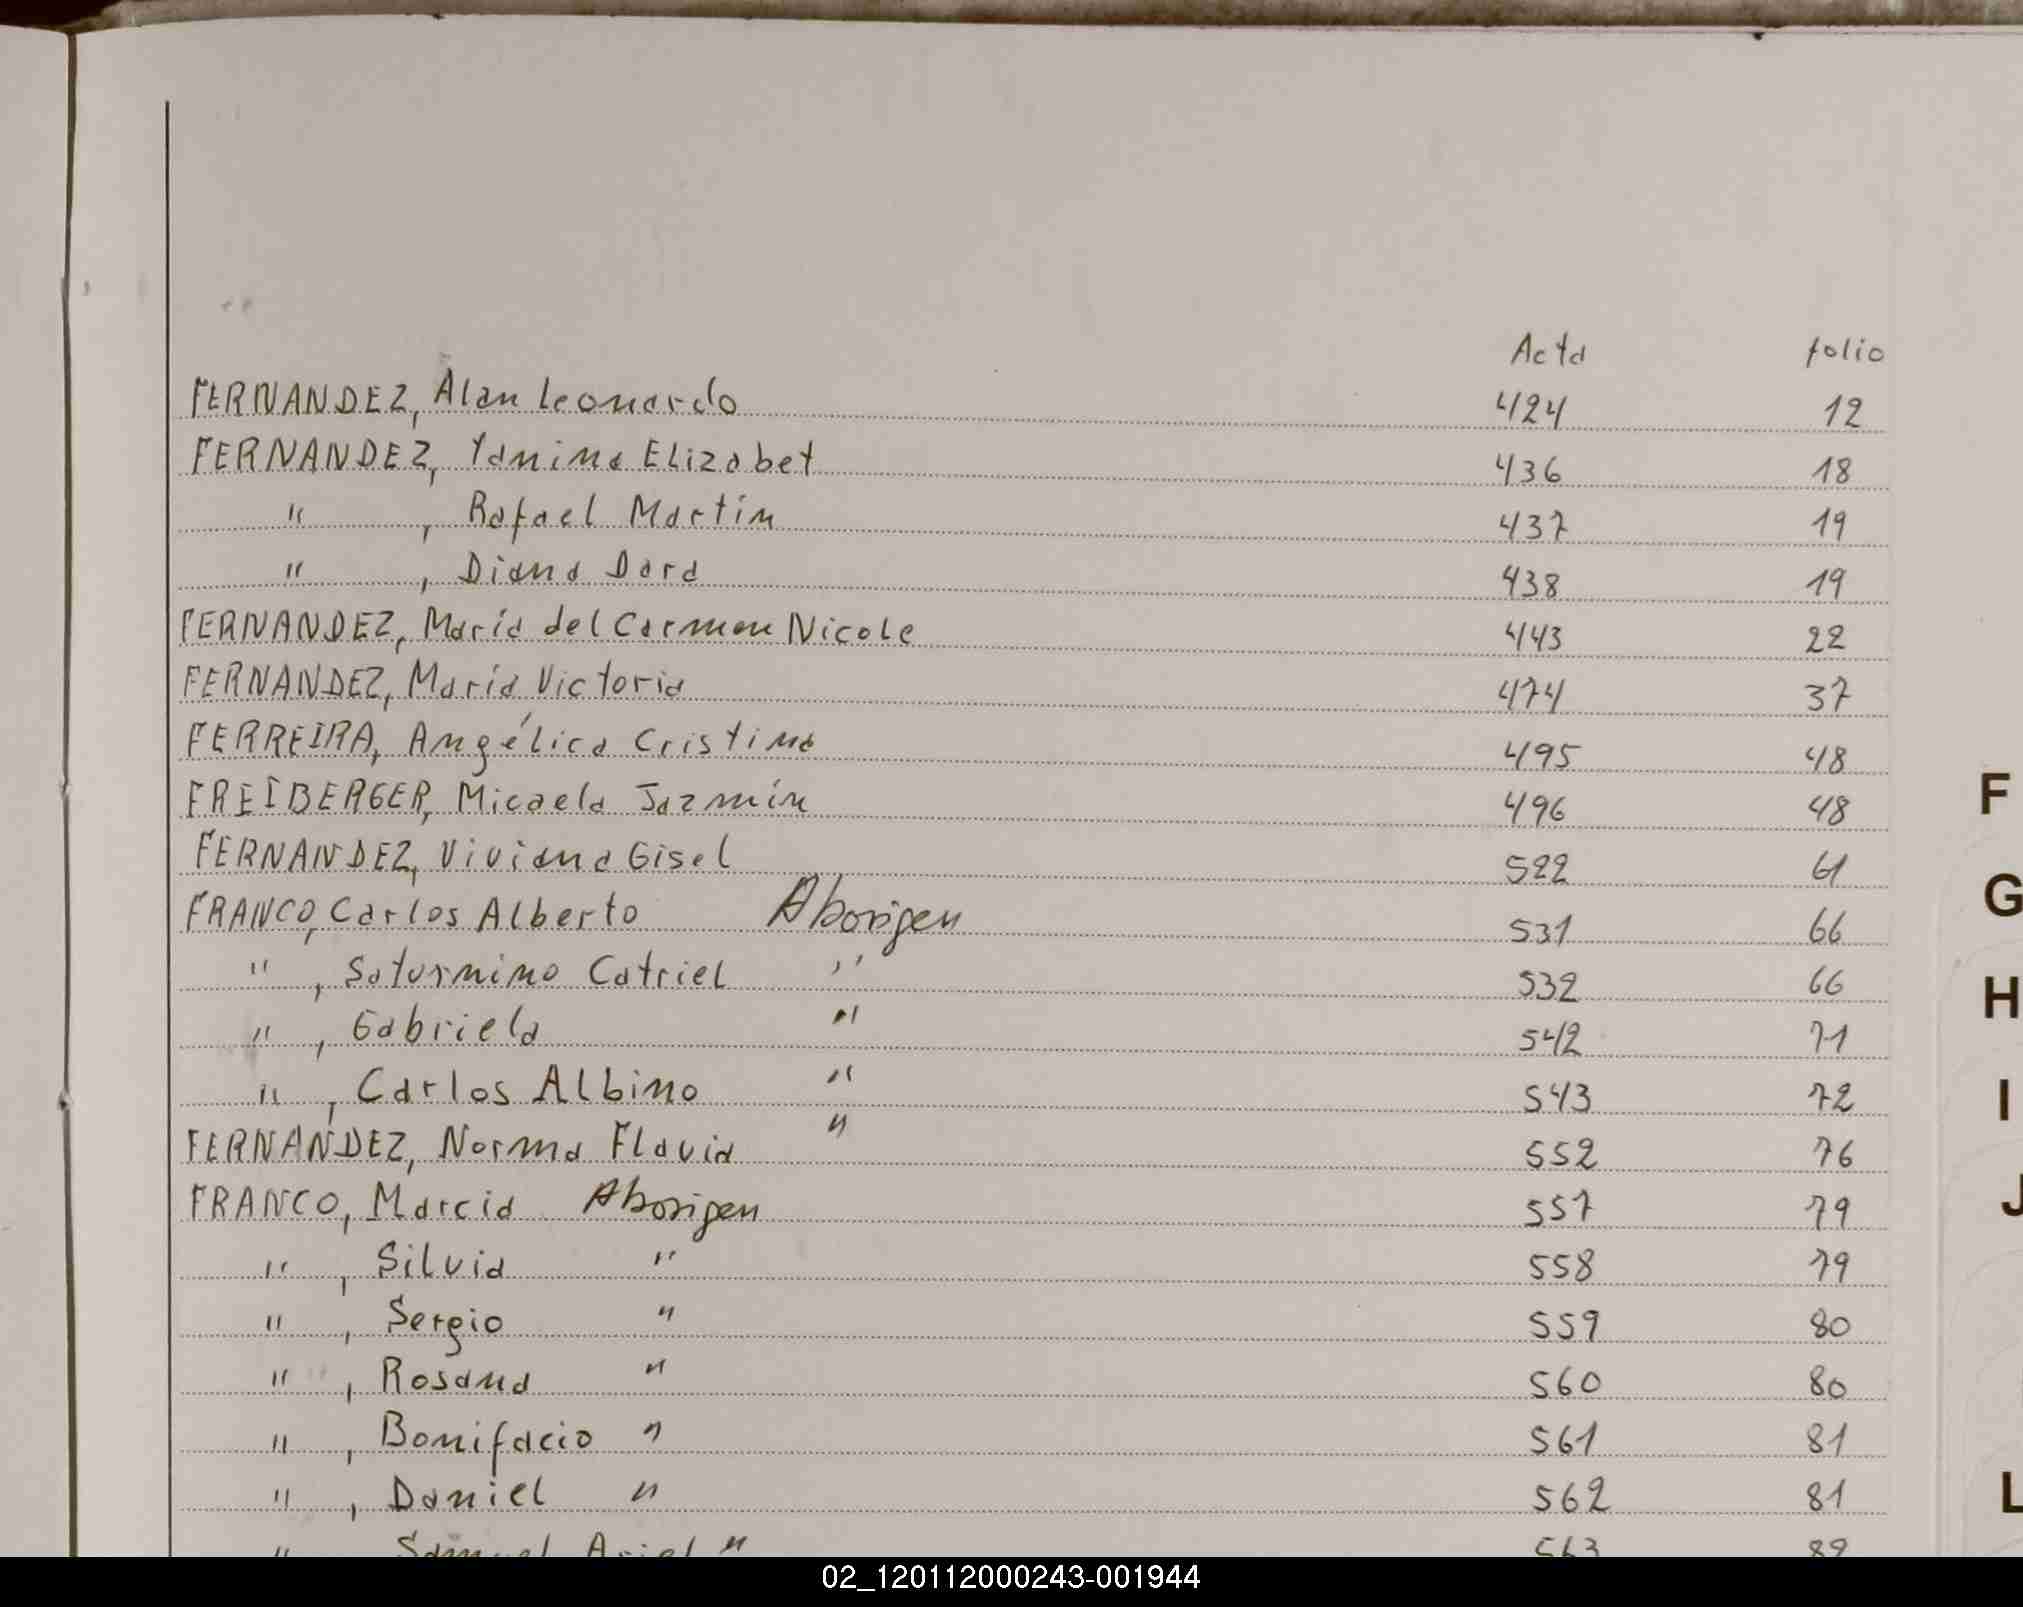 Acta folio
FERNANDEZ, Alan Leonardo 424 12
FERNANDEZ, Yanina Elizabet 436 18
" , Rafael Martin 437 19
" , Diana Dora 438 19
FERNANDEZ, María del Carmen Nicole 443 22
FERNANDEZ, María Victoria 474 37
FERREIRA, Angélica Cristina 495 48
FREIBERGER, Micaela Jazmín 496 48
FERNANDEZ, Viviana Gisel 522 61
FRANCO, Carlos Alberto Aborigen 531 66
" , Saturnino Catriel " 532 66
" , Gabriela " 542 71
" , Carlos Albino " 543 72
FERNANDEZ, Norma Flavia " 552 76
FRANCO, Marcia Aborigen 557 79
" , Silvia " 558 79
" , Sergio " 559 80
" , Rosana " 560 80
" , Bonifacio " 561 81
" , Daniel " 562 81
" Samuel Ariel " 563 82
F
G
H
I
J
L
02_120112000243-001944